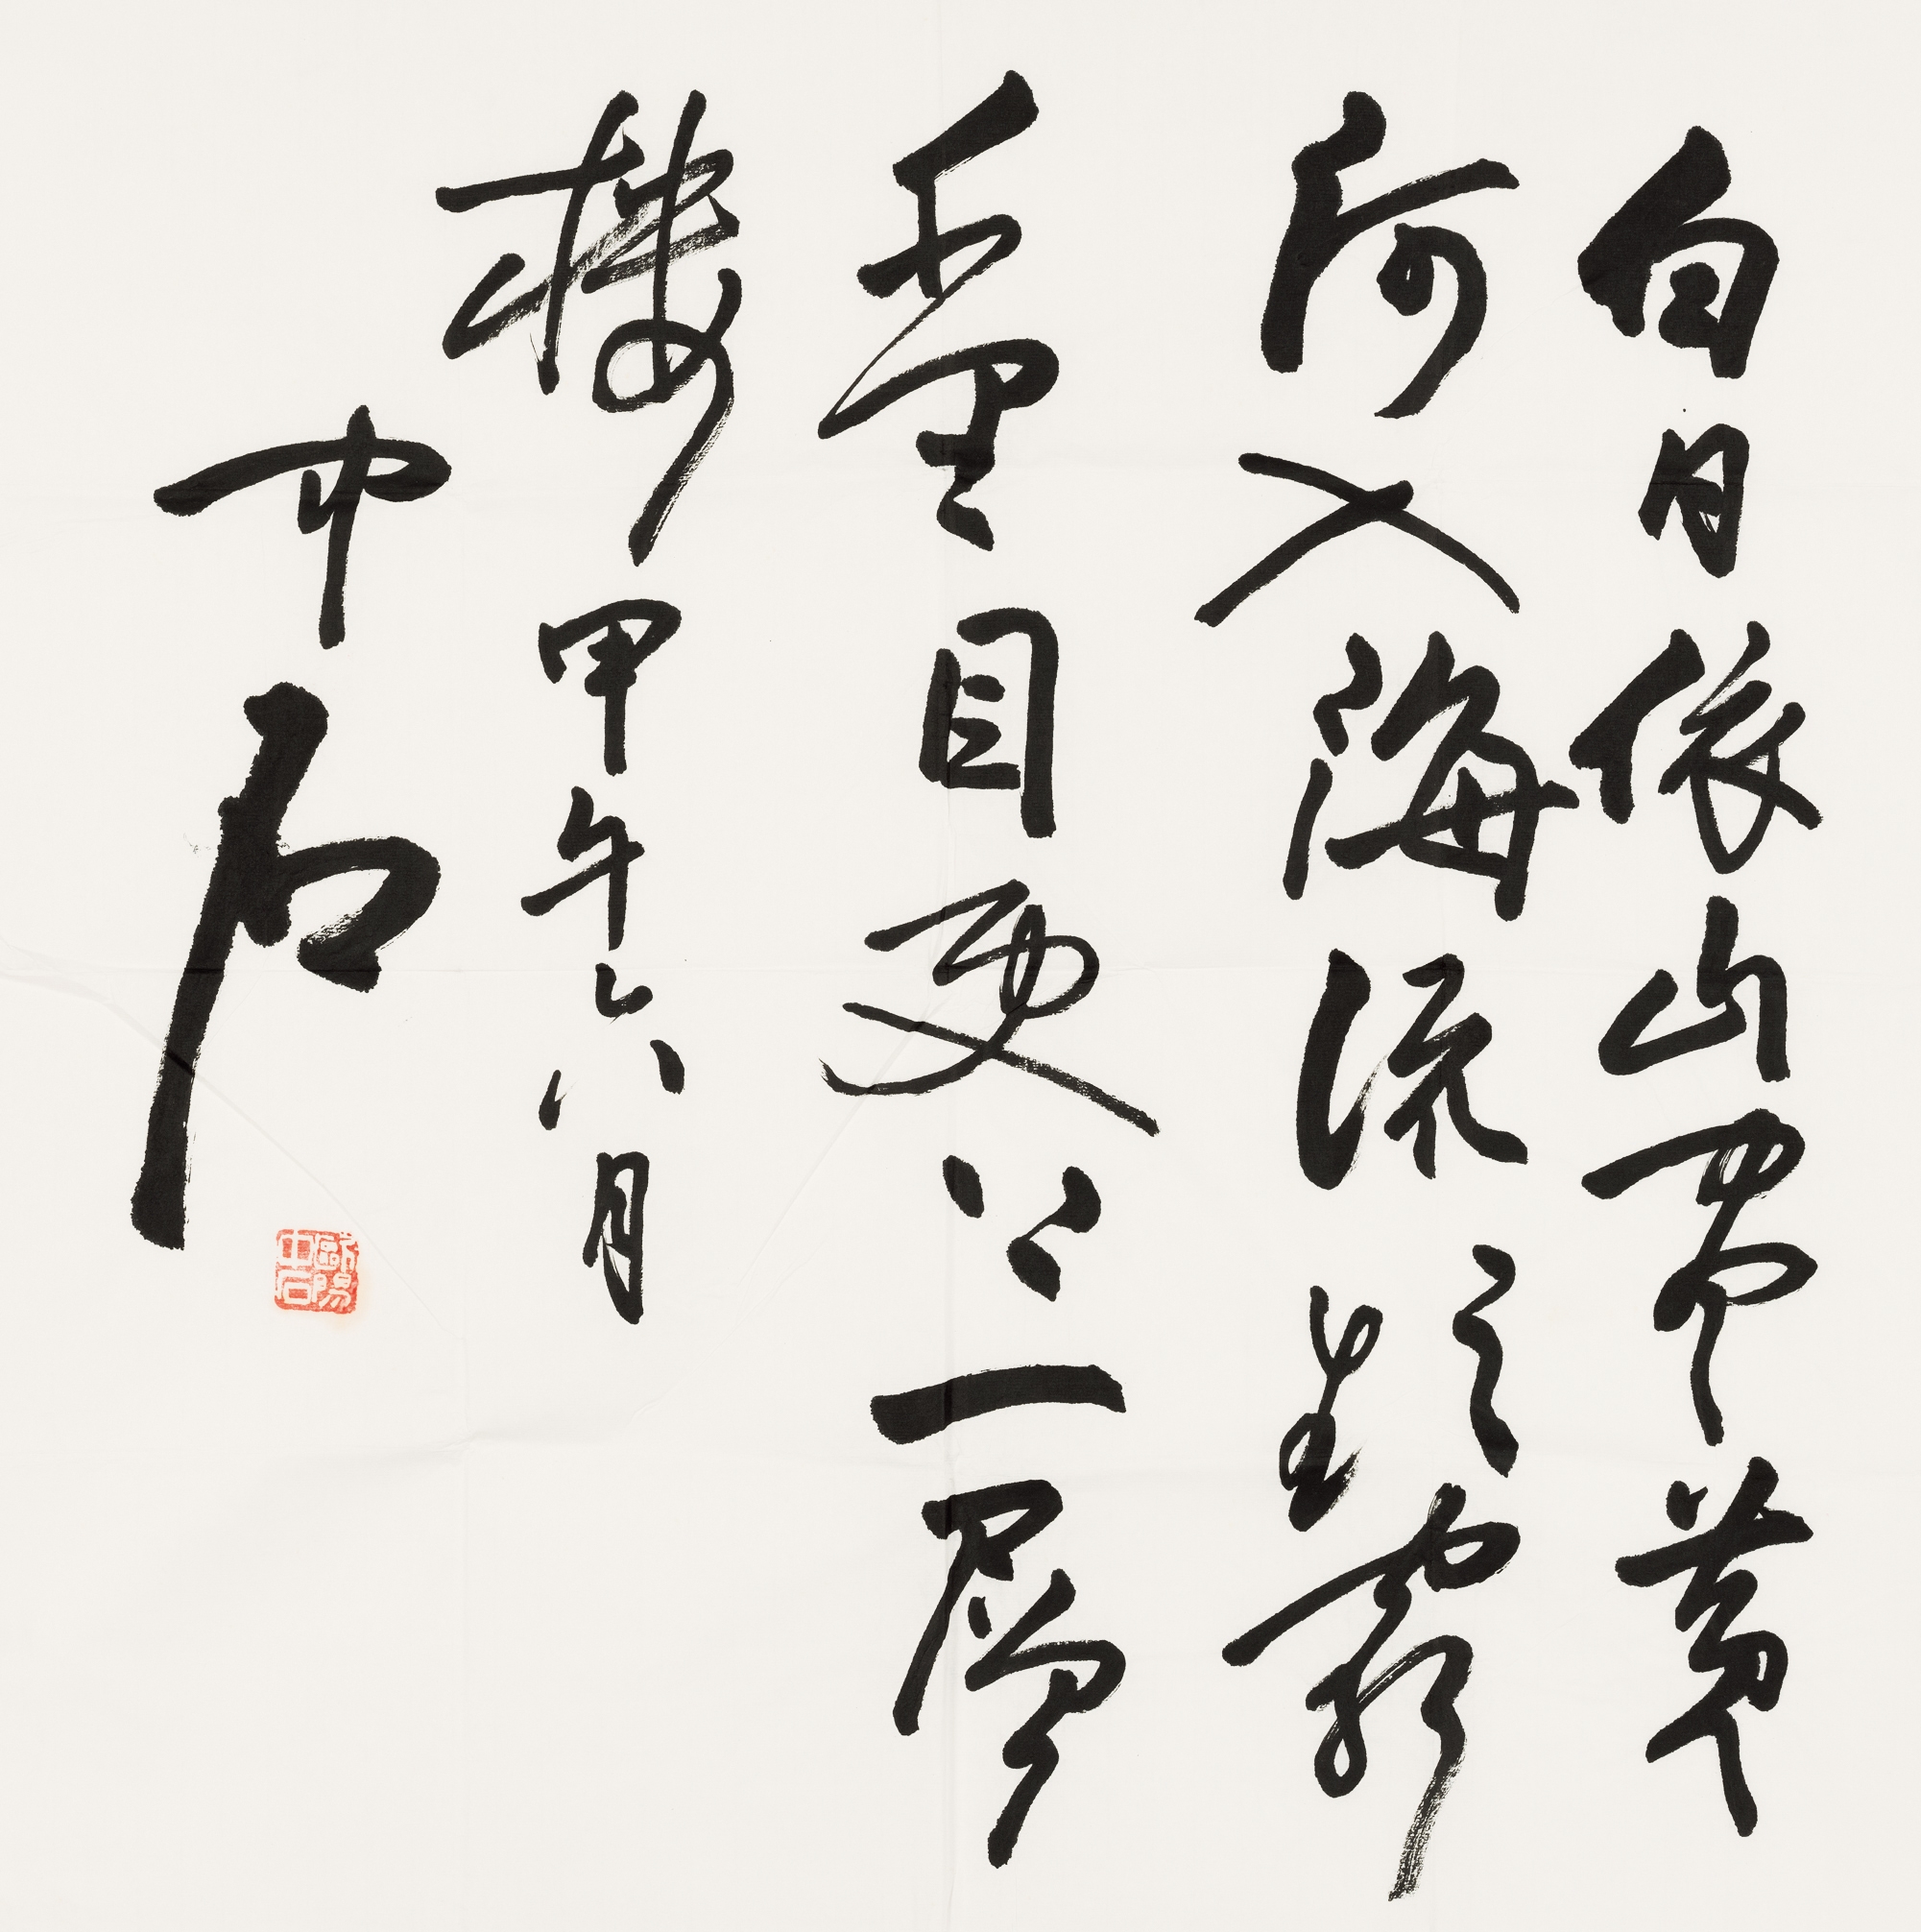 白日依山尽黄
河入海流欲窮
千里目更上一層
樓 甲午六月
中石
歐陽中石